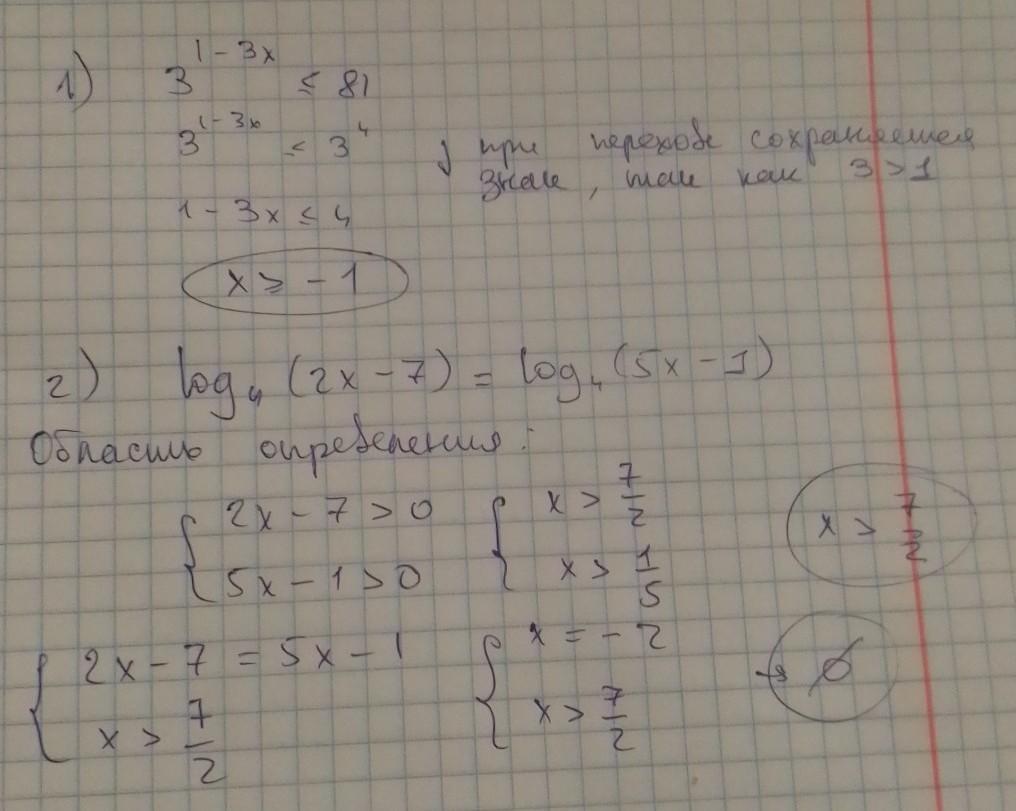 1) 3^(1-3x) ≤ 81
3^(1-3x) ≤ 3^4 при переходе сохраняется
знак, так как 3 > 1
1 - 3x ≤ 4
x ≥ -1
2) log₄ (2x - 7) = log₄ (5x - 1)
Область определения:
{ 2x - 7 > 0 { x > 7/2 x > 7/2
5x - 1 > 0 x > 1/5
{ 2x - 7 = 5x - 1 { x = -2 → ∅
x > 7/2 x > 7/2